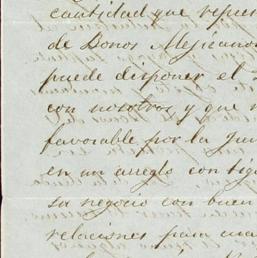 cantidad que repre
de Bonos Mejicano
puede disponer el
con nosotros y que
favorable por la Jun
en un arreglo con
sa negocio con buen
relaciones para